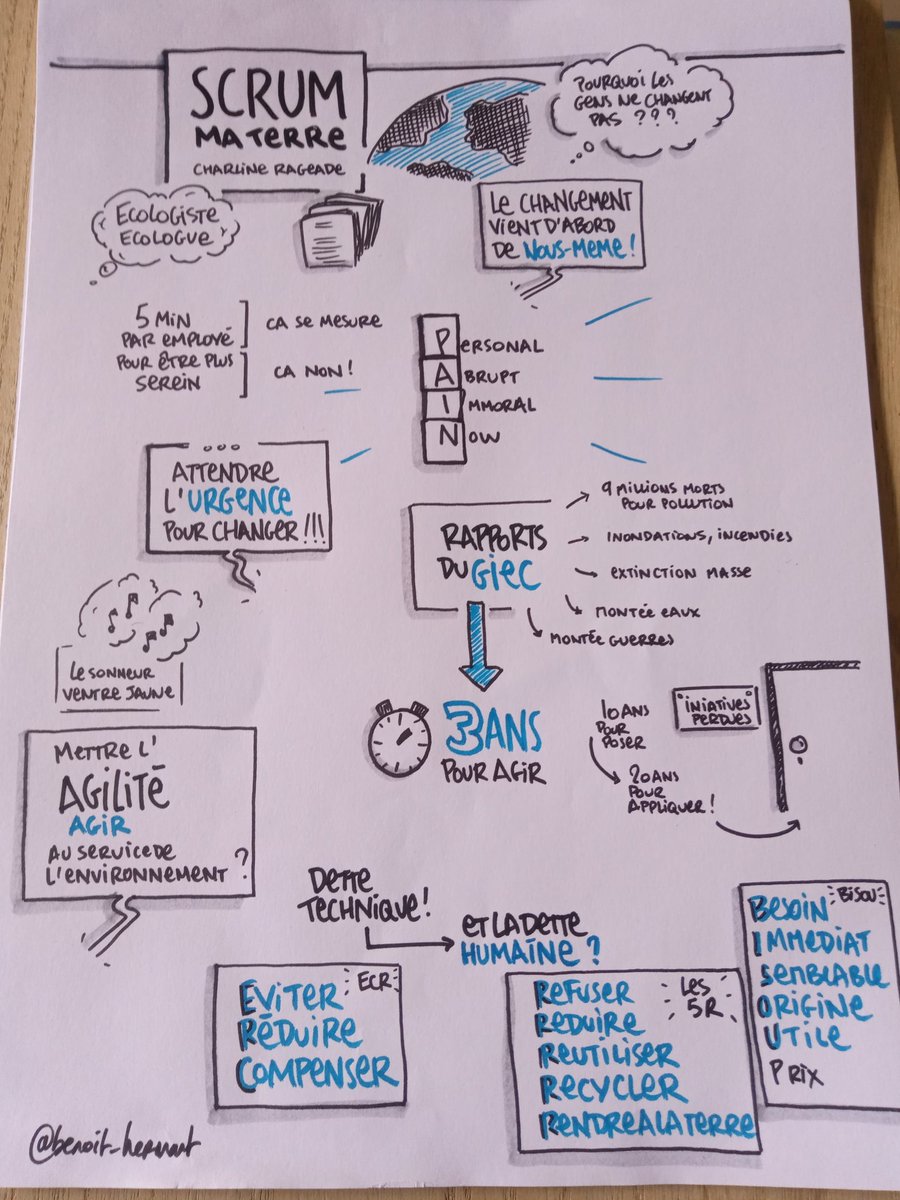 SCRUM
MATERRE
CHARLINE RAGEADE
POURQUOI LES
GENS NE CHANGENT
PAS ???
ECOLOGISTE
ECOLOGUE
LE CHANGEMENT
VIENT D'ABORD
DE NOUS-MEME !
5 MIN
PAR EMPLOYÉ
POUR ÊTRE PLUS
SEREIN
CA SE MESURE
CA NON !
PERSONAL
ABRUPT
IMMORAL
NOW
...
ATTENDRE
L'URGENCE
POUR CHANGER !!!
RAPPORTS
DU GIEC
9 MILLIONS MORTS
POUR POLLUTION
INONDATIONS, INCENDIES
EXTINCTION MASSE
MONTÉE EAUX
MONTÉE GUERRES
LE SONNEUR
VENTRE JAUNE
3 ANS
POUR AGIR
10 ANS
POUR
POSER
20 ANS
POUR
APPLIQUER !
INIATIVES
PERDUES
METTRE L'
AGILITÉ
AGIR
AU SERVICE DE
L'ENVIRONNEMENT ?
DETTE
TECHNIQUE !
ET LA DETTE
HUMAINE ?
ECR
EVITER
RÉDUIRE
COMPENSER
LES
5R
REFUSER
REDUIRE
REUTILISER
RECYCLER
RENDRE A LA TERRE
BISOU
BESOIN
IMMEDIAT
SEMBLABLE
ORIGINE
UTILE
PRIX